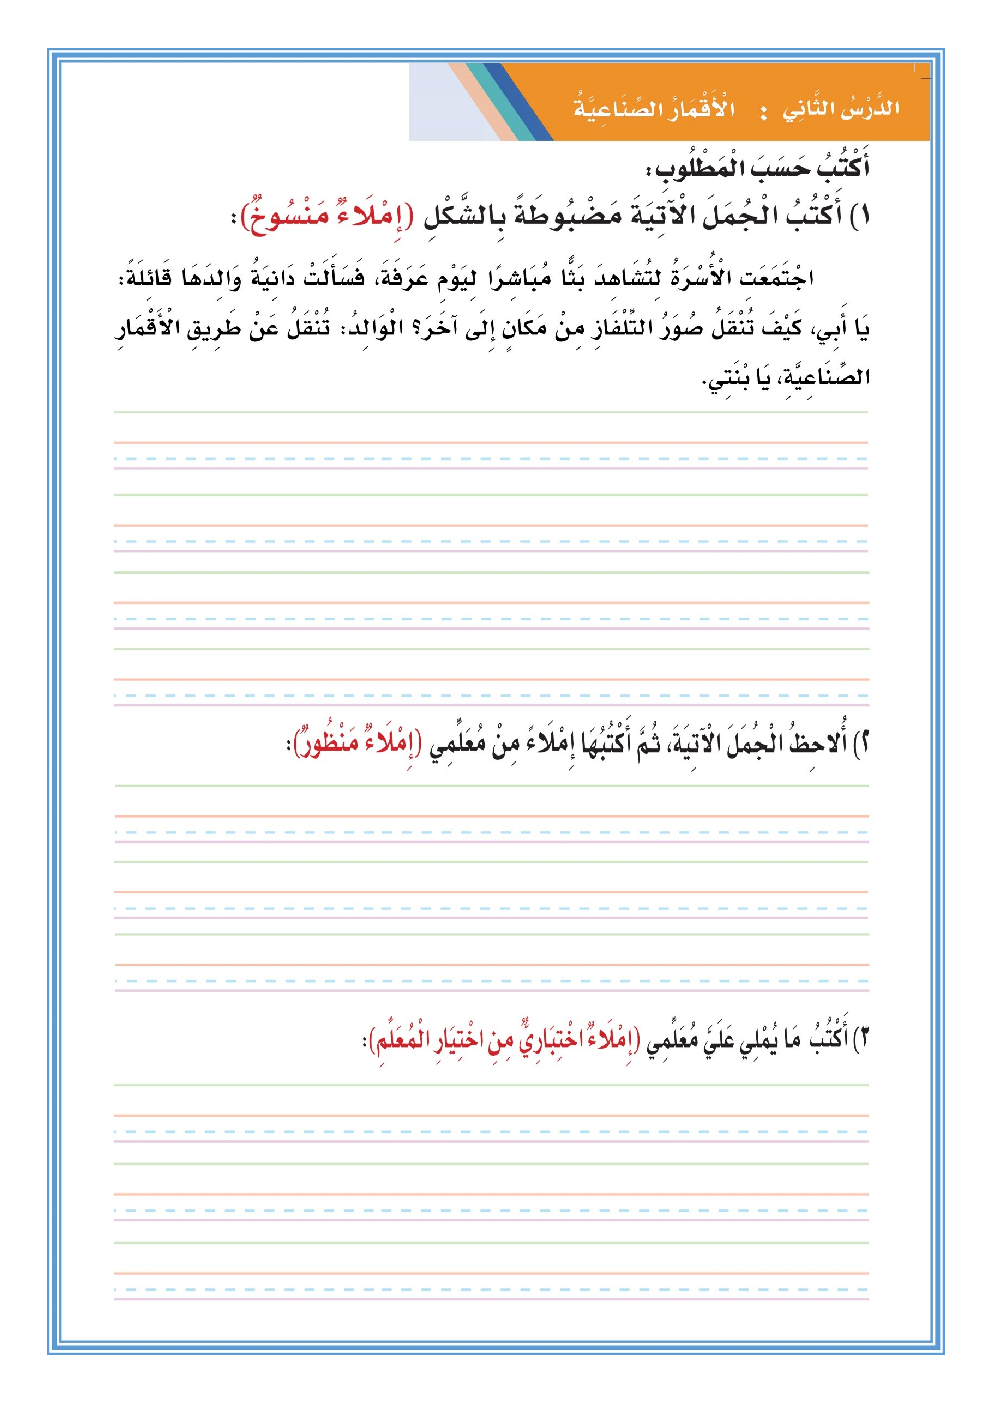 الدَّرْسُ الثَّانِي : الْأَقْمَارُ الصِّنَاعِيَّةُ
أَكْتُبُ حَسَبَ الْمَطْلُوبِ:
١) أَكْتُبُ الْجُمَلَ الْآتِيَةَ مَضْبُوطَةً بِالشَّكْلِ (إِمْلَاءٌ مَنْسُوخٌ):
اجْتَمَعَتِ الْأُسْرَةُ لِتُشَاهِدَ بَثًّا مُبَاشِرًا لِيَوْمِ عَرَفَةَ، فَسَأَلَتْ دَانِيَةُ وَالِدَهَا قَائِلَةً:
يَا أَبِي، كَيْفَ تُنْقَلُ صُوَرُ التِّلْفَازِ مِنْ مَكَانٍ إِلَى آخَرَ؟ الْوَالِدُ: تُنْقَلُ عَنْ طَرِيقِ الْأَقْمَارِ
الصِّنَاعِيَّةِ، يَا بْنَتِي.
٢) أُلاحِظُ الْجُمَلَ الْآتِيَةَ، ثُمَّ أَكْتُبُهَا إِمْلَاءً مِنْ مُعَلِّمِي (إِمْلَاءٌ مَنْظُورٌ):
٣) أَكْتُبُ مَا يُمْلِي عَلَيَّ مُعَلِّمِي (إِمْلَاءٌ اخْتِبَارِيٌّ مِنِ اخْتِيَارِ الْمُعَلِّمِ):